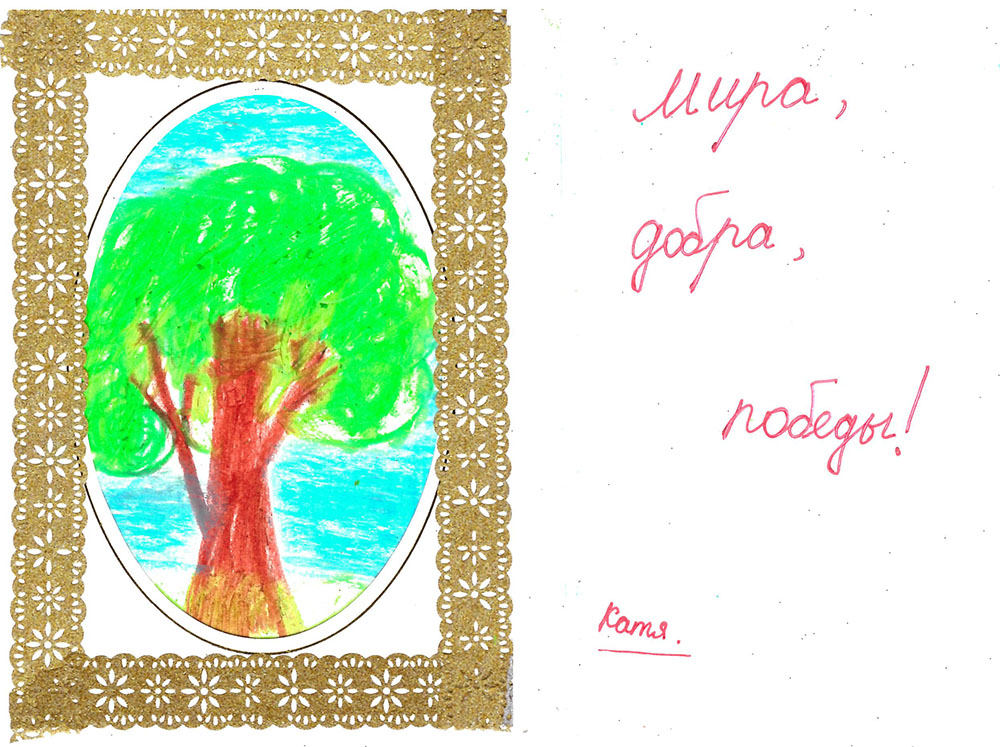 Мира,
добра,
победы!
Катя.